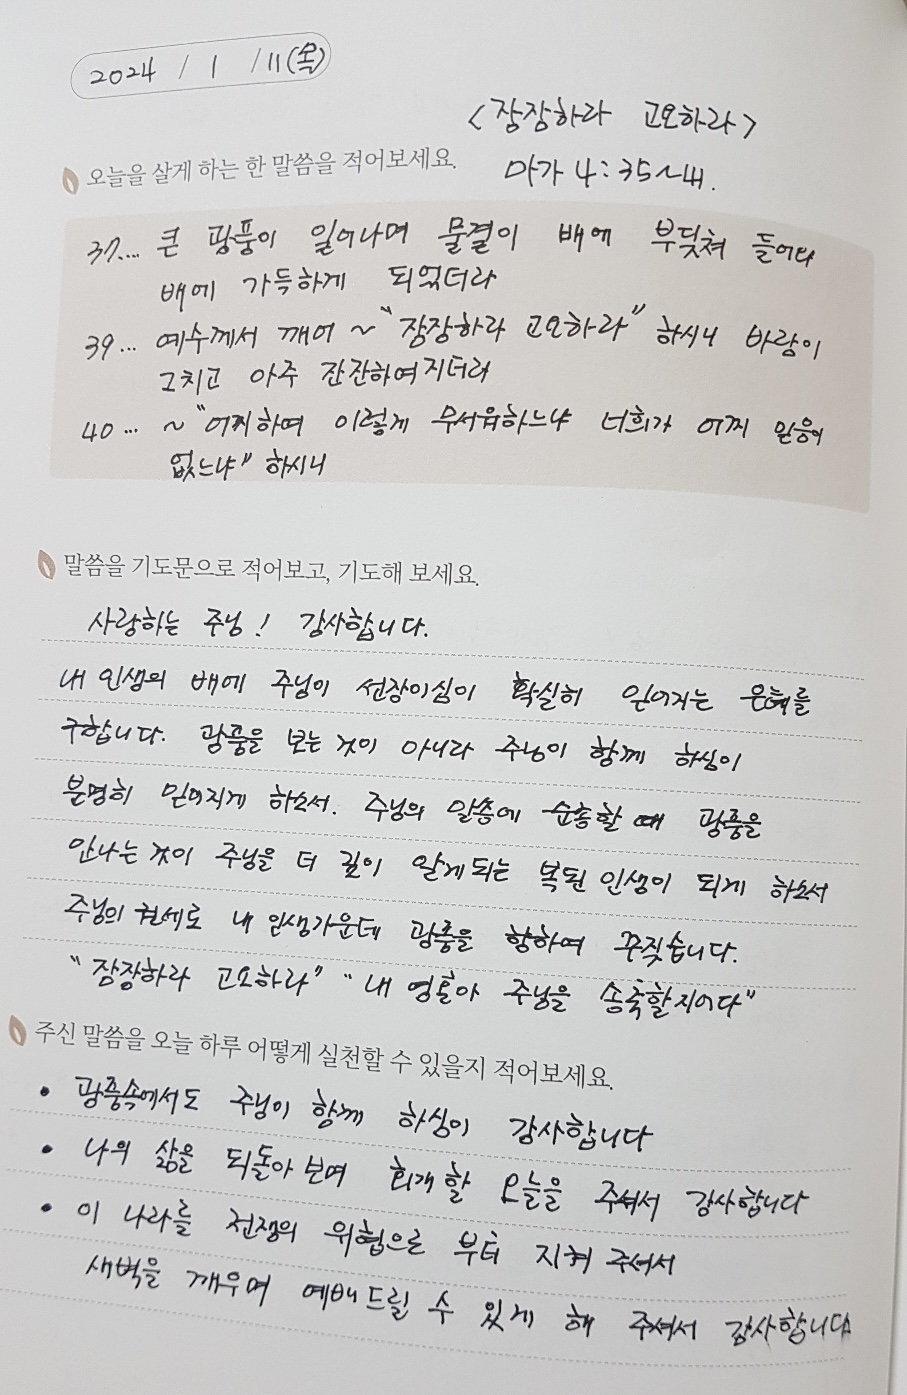 2024 / 1 / 11 (목)
<잠잠하라 고요하라>
오늘을 살게 하는 한 말씀을 적어보세요.
마가 4:35~41.
37... 큰 광풍이 일어나며 물결이 배에 부딪쳐 들어와
배에 가득하게 되었더라
39... 예수께서 깨어 ~ "잠잠하라 고요하라" 하시니 바람이
그치고 아주 잔잔하여지더라
40... ~ "어찌하여 이렇게 무서워하느냐 너희가 어찌 믿음이
없느냐" 하시니
말씀을 기도문으로 적어보고, 기도해 보세요.
사랑하는 주님! 감사합니다.
내 인생의 배에 주님이 선장이심이 확실히 믿어지는 은혜를
구합니다. 광풍을 보는 것이 아니라 주님이 함께 하심이
분명히 믿어지게 하소서. 주님의 말씀에 순종할 때 광풍을
만나는 것이 주님을 더 깊이 알게되는 복된 인생이 되게 하소서
주님의 권세로 내 인생가운데 광풍을 향하여 꾸짖습니다.
"잠잠하라 고요하라" "내 영혼아 주님을 송축할지어다"
주신 말씀을 오늘 하루 어떻게 실천할 수 있을지 적어보세요.
• 광풍속에서도 주님이 함께 하심이 감사합니다
• 나의 삶을 되돌아 보며 회개할 오늘을 주셔서 감사합니다
• 이 나라를 전쟁의 위협으로 부터 지켜 주셔서
새벽을 깨우며 예배드릴 수 있게 해 주셔서 감사합니다